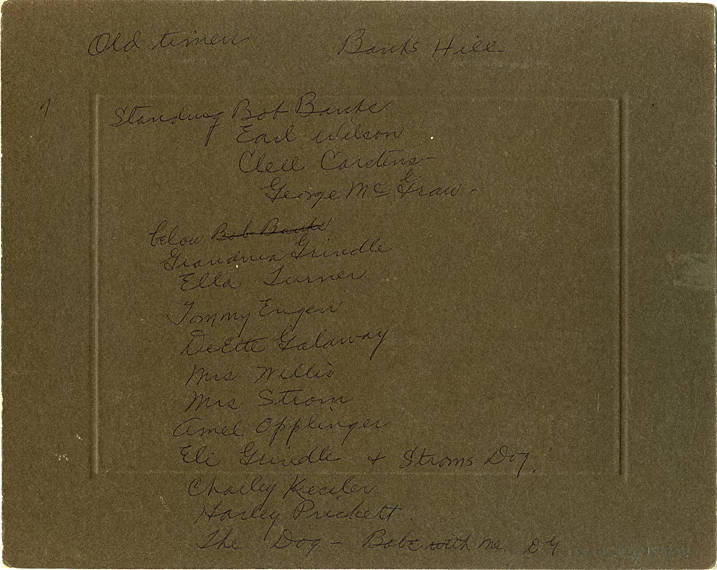 Old timers Banks Hill
Standing Bob Banks
Earl Wilson
Clell Carstens
George Mc Graw
below Bob Banks
Grandma Grindle
Ella Turner
Tommy Eugen
DeEtte Galaway
Mrs Willis
Mrs Strom
Amel Opplinger
Eli Grindle + Stroms Dog.
Charley Kesiler
Harley Prickett
The Dog - Babe with me D G